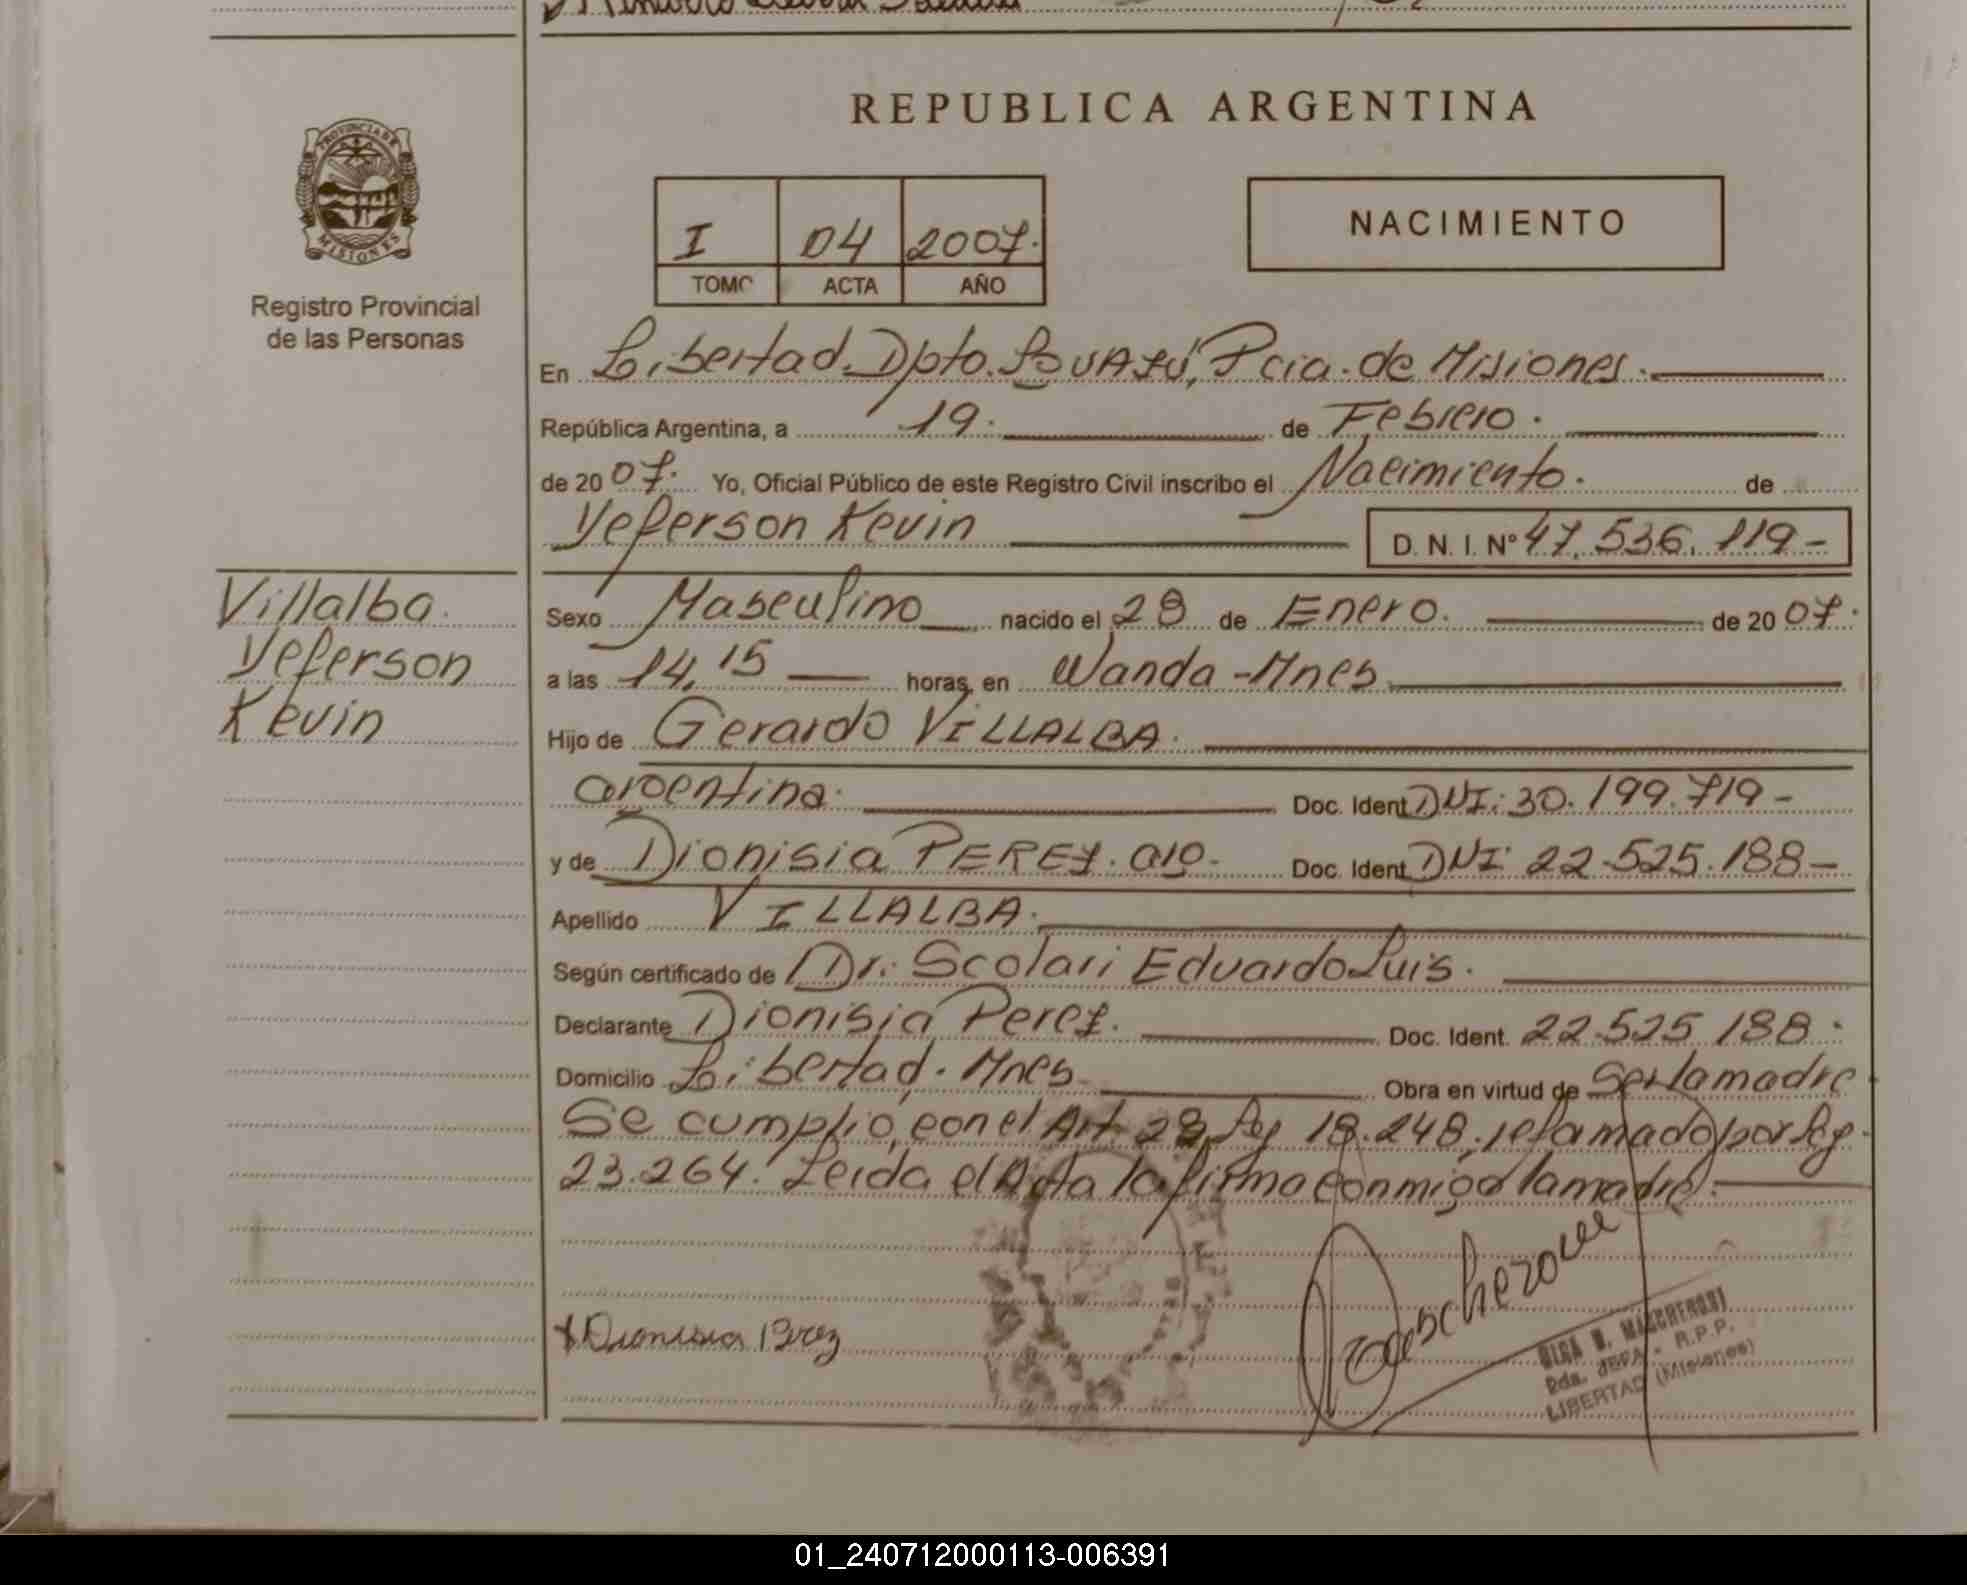 REPUBLICA ARGENTINA
PROVINCIA DE
MISIONES
Registro Provincial
de las Personas
I 04 2007.
TOMO ACTA AÑO
NACIMIENTO
En Libertad Dpto. Iguazú, Pcia. de Misiones.
República Argentina, a 19. de Febrero.
de 20 07. Yo, Oficial Público de este Registro Civil inscribo el Nacimiento. de
Yeferson Kevin D. N. I. N° 47.536.119-
Villalba
Yeferson
Kevin
Sexo Masculino nacido el 28 de Enero. de 20 07.
a las 14,15 horas, en Wanda - Mnes
Hijo de Gerardo VILLALBA.
argentina. Doc. Ident. DNI: 30.199.719-
y de Dionisia PEREZ. arg. Doc. Ident. DNI 22.525.188-
Apellido VILLALBA.
Según certificado de Dr. Scolari Eduardo Luis.
Declarante Dionisia Perez. Doc. Ident. 22.525.188.
Domicilio Libertad. Mnes Obra en virtud de Ser la madre
Se cumplio con el Art 28 Ley 18.248, refamado por Ley
23.264. Leida el Acta la firma conmigo la madre.
x Dionisia Perez
OLGA M. MASCHERONI
JEFA - R.P.P.
LIBERTAD (Misiones)
01_240712000113-006391